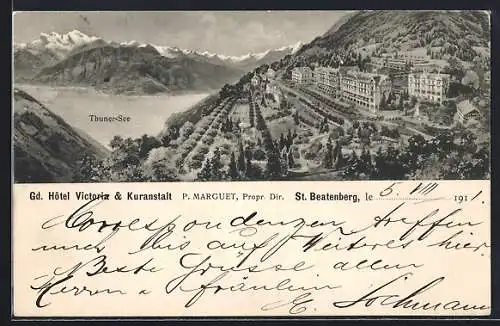 Thuner-See
Gd. Hôtel Victoria & Kuranstalt P. MARGUET, Propr. Dir. St. Beatenberg, le 5. VII 1911.
Correspondenzen treffen
mich bis auf Weiteres hier.
Beste Grüsse allen
Herren & Fräulein E. Lochmann